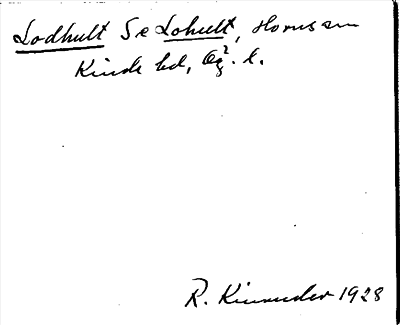 Lodhult Se Lohult, Horns sn
Kinds hd, Ög. l.
R. Kinnander 1928